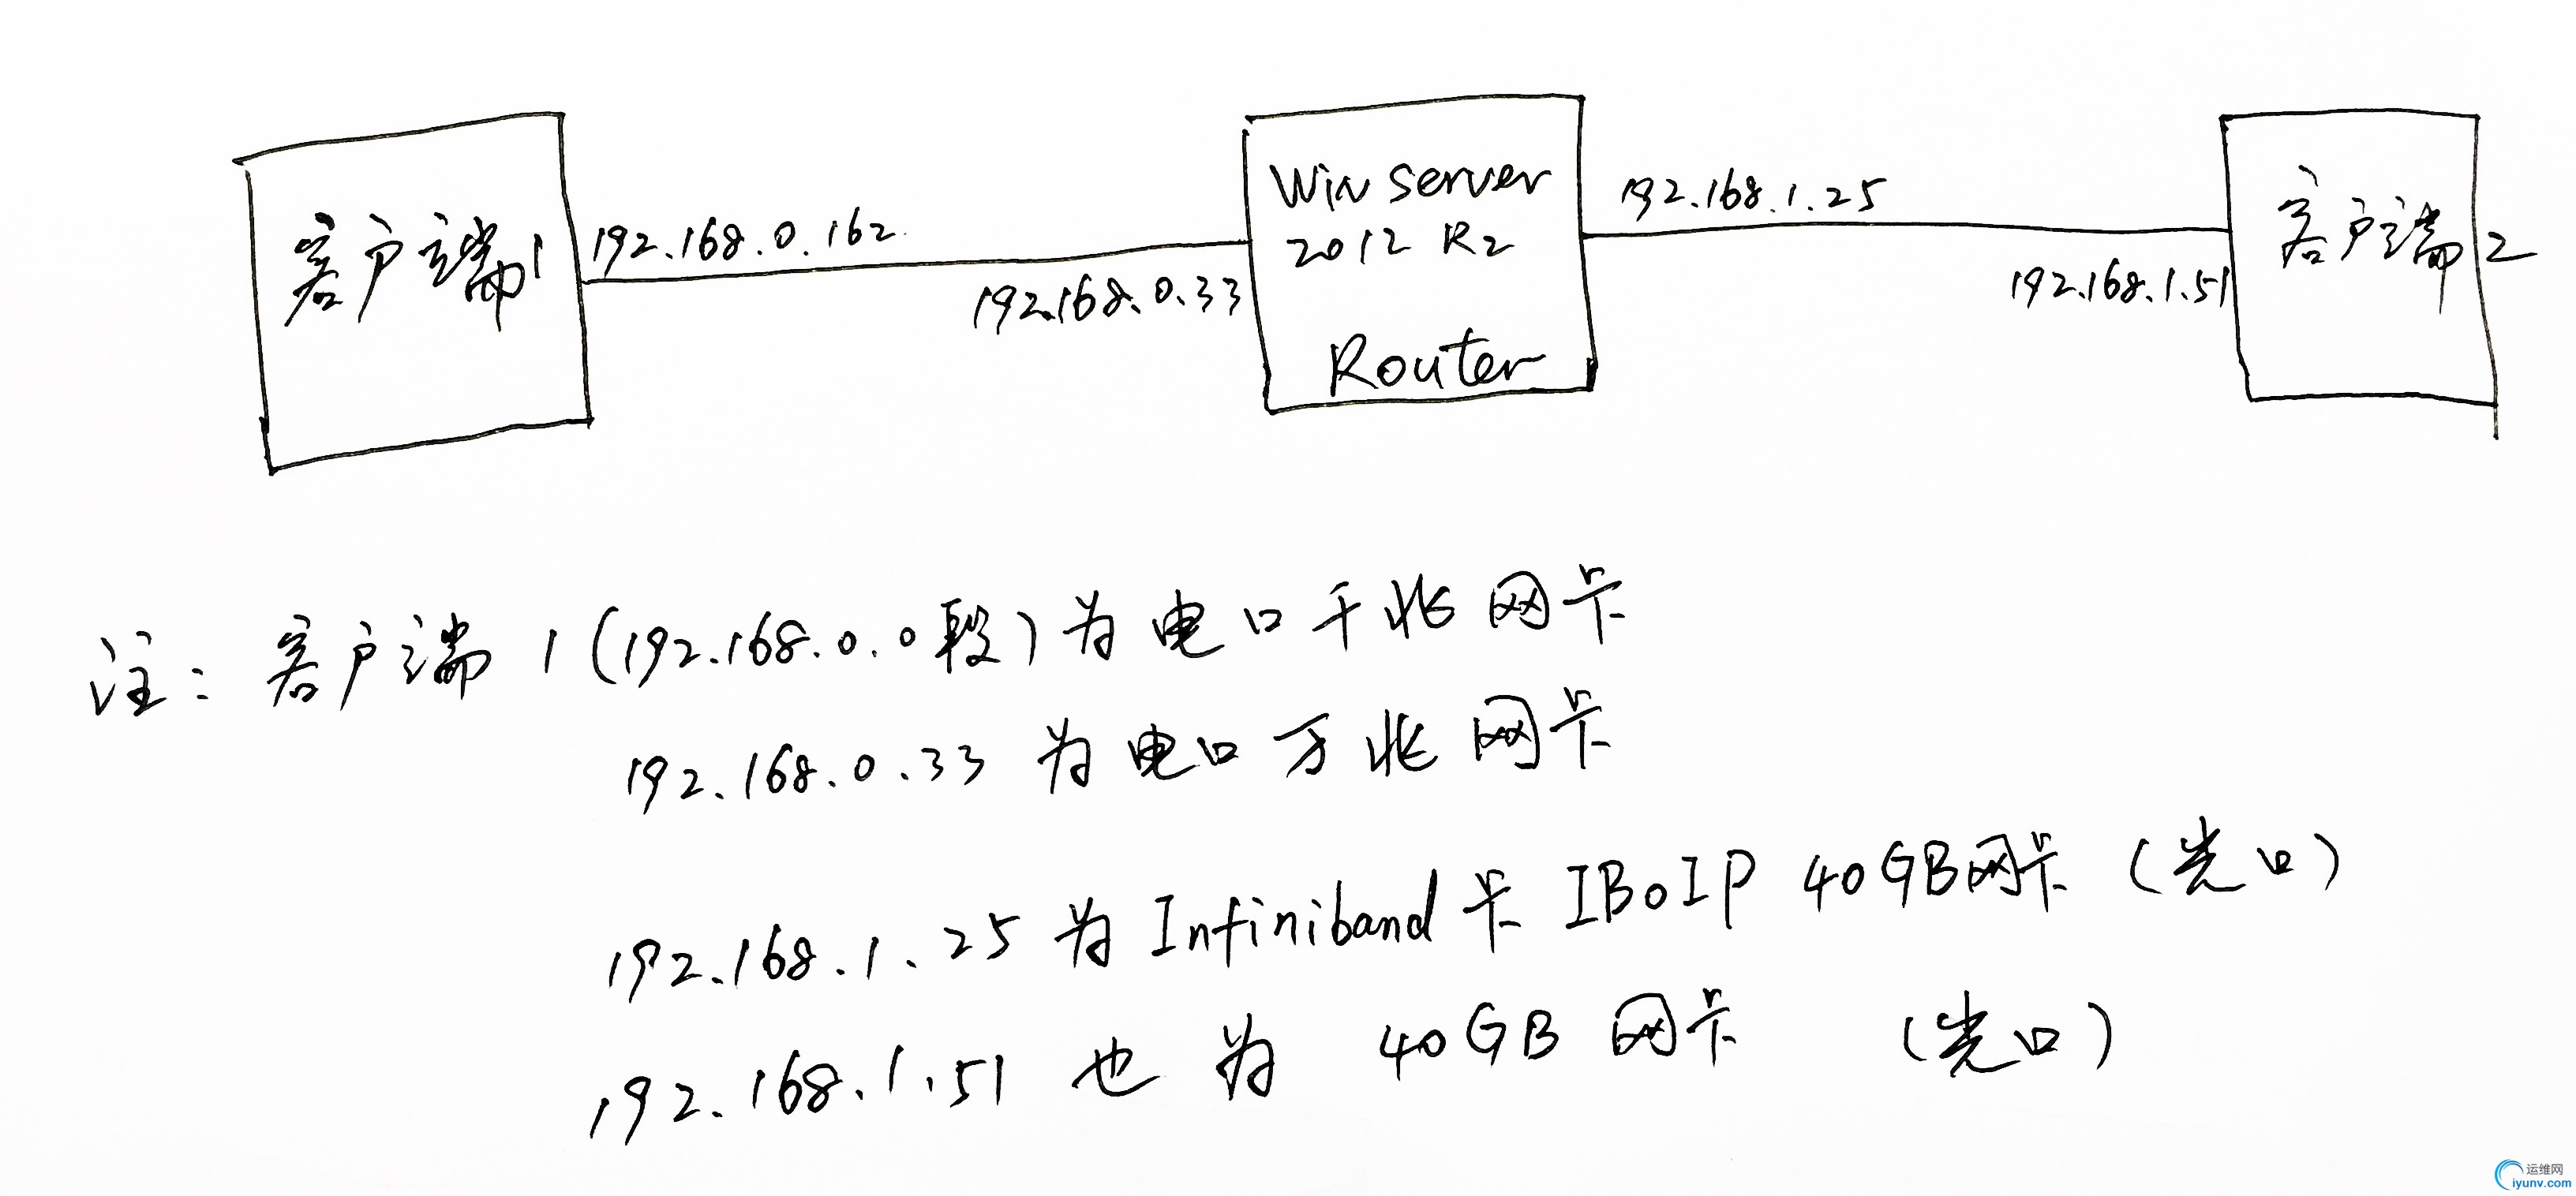 客户端1
192.168.0.162
192.168.0.33
Win Server
2012 R2
Router
192.168.1.25
192.168.1.51
客户端2
注: 客户端 1 (192.168.0.0段) 为 电口千兆网卡
192.168.0.33 为 电口万兆网卡
192.168.1.25 为 Infiniband卡 IBoIP 40GB网卡 (光口)
192.168.1.51 也为 40GB 网卡 (光口)
运维网
iyunv.com